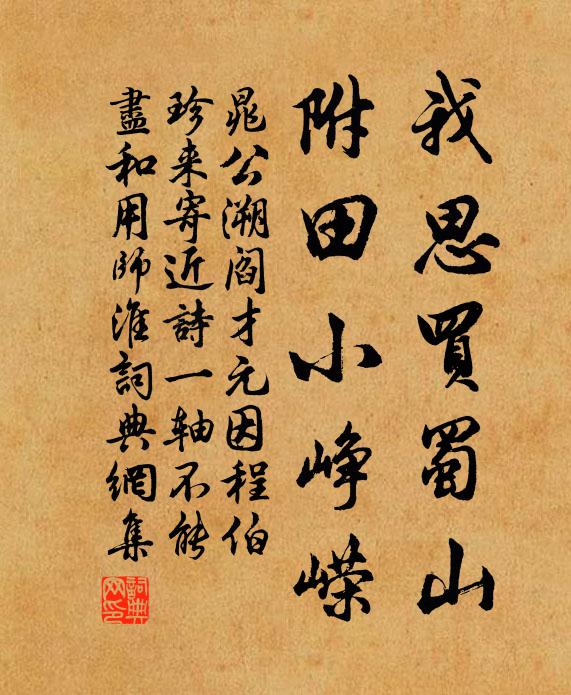 我思買蜀山
附田小崢嶸
晁公溯閻才元因程伯
珍来寄近詩一轴不能
盡和用師淮詞典網集
詞典網印